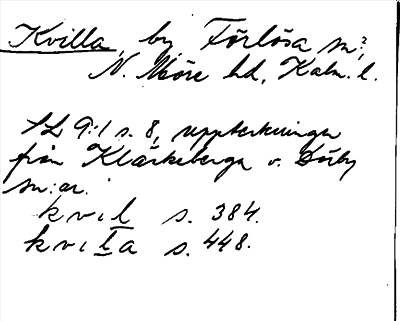 Kvilla, by, Förlösa sn,
N. Möre hd, Kalm. l.
SL 9:1 s. 8, uppteckningar
från Kläckeberga o. Dörby
sn:ar.
kvil s. 384.
kvila s. 448.